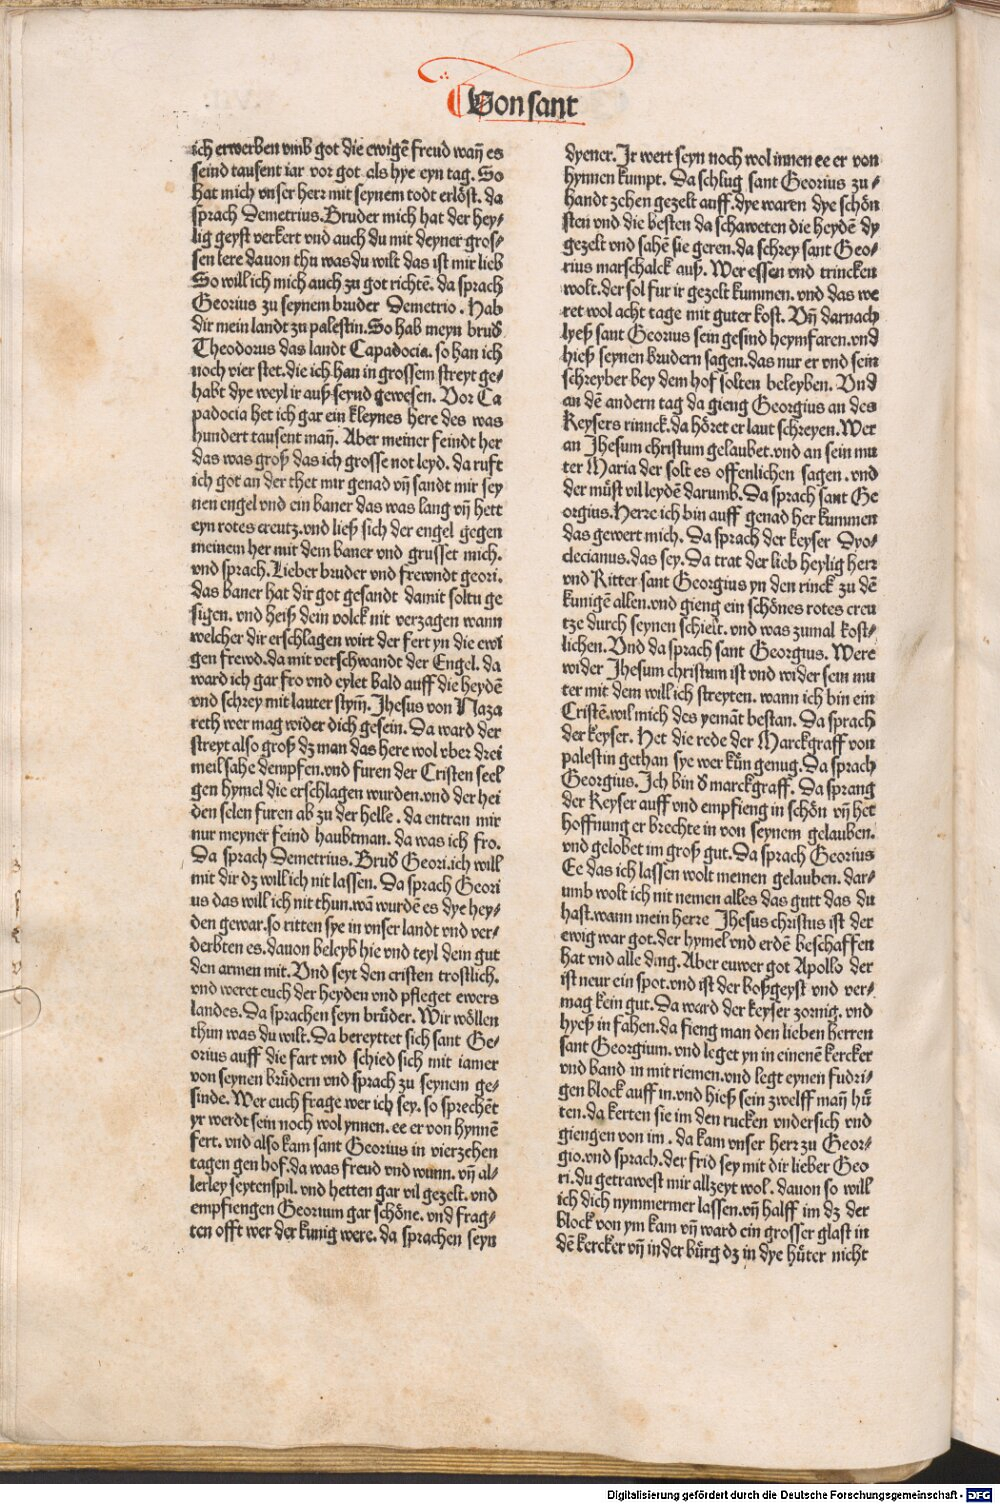 Von sant
ich erwerben vmb got die ewigē freud wañ es
seind tausent iar vor got als hye eyn tag. So
hat mich vnser herr mit seynem todt erlöst. da
sprach Demetrius. Bruder mich hat der hey⸗
lig geyst verkert vnd auch du mit deyner gros⸗
sen lere dauon thu was du wilt das ist mir lieb
So will ich mich auch zu got richtē. da sprach
Georius zu seynem bruder Demetrio. Hab
dir mein landt zu palestin. So hab meyn brud̕
Theodorus das landt Capadocia. so han ich
noch vier stet. die ich han in grossem streyt ge⸗
habt dye weyl ir auß seynd gewesen. Vor Ca
padocia het ich gar ein kleynes here des was
hundert tausent mañ. Aber meiner feindt her
das was groß das ich grosse not leyd. da ruft
ich got an der thet mir genad vñ sandt mir sey
nen engel vnd ein baner das was lang vñ hett
eyn rotes creutz. vnd ließ sich der engel gegen
meinem her mit dem baner vnd grusset mich.
vnd sprach. Lieber bruder vnd frewndt geori.
das baner hat dir got gesandt damit soltu ge
sigen. vnd heiß dein volck nit verzagen wann
welcher dir erschlagen wirt der fert yn die ewi
gen frewd. da mit verschwandt der Engel. da
ward ich gar fro vnd eylet bald auff die heydē
vnd schrey mit lauter stym̄. Jhesus von Naza
reth wer mag wider dich gesein. Da ward der
streyt also groß dz man das here wol vber drei
meil sahe dempfen. vnd furen der Cristen seel
gen hymel die erschlagen wurden. vnd der hei
den selen furen ab zu der helle. da entran mir
nur meyner feind haubtman. da was ich fro.
Da sprach Demetrius. Brud̕ Geori. ich will
mit dir dz will ich nit lassen. Da sprach Geori
us das will ich nit thun. wā wurdē es dye hey⸗
den gewar. so ritten sye in vnser landt vnd ver⸗
derbten es. dauon beleyb hie vnd teyl dem gut
den armen mit. Vnd seyt den cristen trostlich.
vnd weret euch der heyden vnd pfleget ewers
landes. Da sprachen seyn brüder. Wir wöllen
thun was du wilt. Da bereyttet sich sant Ge⸗
orius auff die fart vnd schied sich mit iamer
von seynen brüdern vnd sprach zu seynem ge⸗
sinde. Wer euch frage wer ich sey. so sprechēt
yr werdt sein noch wol ynnen. ee er von hynnē
fert. vnd also kam sant Georius in vierzehen
tagen gen hof. da was freud vnd wunn. vñ al⸗
lerley seytenspil. vnd hetten gar vil gezelt. vnd
empfiengen Georium gar schöne. vnd frag⸗
ten offt wer der kunig were. da sprachen seyn
dyener. Jr wert seyn noch wol innen ee er von
hynnen kumpt. Da schlug sant Georius zu⸗
handt zehen gezelt auff. dye waren dye schön
sten vnd die besten da schaweten die heydē dy
gezelt vnd sahē sie geren. da schrey sant Geo⸗
rius marschalck auß. Wer essen vnd trincken
wolt. der sol fur ir gezelt kummen. vnd das we
ret wol acht tage mit guter kost. Vñ darnach
lyeß sant Georius sein gesind heymfaren. vnd
hieß seynen brudern sagen. das nur er vnd sein
schreyber bey dem hof solten beleyben. Vnd
an dē andern tag da gieng Georgius an des
Keysers rinnck. da höret er laut schreyen. Wer
an Jhesum christum gelaubet. vnd an sein mu
ter Maria der solt es offenlichen sagen. vnd
der müst vil leydē darumb. Da sprach sant Ge
orgius. Herre ich bin auff genad her kummen
das gewert mich. Da sprach der keyser Dyo⸗
clecianus. das sey. Da trat der lieb heylig herr
vnd Ritter sant Georgius yn den rinck zu dē
kunigē allen. vnd gieng ein schönes rotes creu
tze durch seynen schielt. vnd was zumal kost⸗
lichen. Vnd da sprach sant Georgius. Were
wider Jhesum christum ist vnd wider sein mu
ter mit dem will ich streyten. wann ich bin ein
Cristē. wil mich des yemāt bestan. Da sprach
der keyser. Het die rede der Marckgraff von
palestin gethan sye wer kün genug. Da sprach
Georgius. Ich bin d̕ marckgraff. Da sprang
der Keyser auff vnd empfieng in schön vñ het
hoffnung er brechte in von seynem gelauben.
vnd gelobet im groß gut. Da sprach Georius
Ee das ich lassen wolt meinen gelauben. dar⸗
umb wolt ich nit nemen alles das gutt das du
hast. wann mein herre Jhesus christus ist der
ewig war got. der hymel vnd erdē beschaffen
hat vnd alle ding. Aber euwer got Apollo der
ist neur ein spot. vnd ist der boßgeyst vnd ver⸗
mag kein gut. Da ward der keyser zornig. vnd
hyeß in fahen. da fieng man den lieben herren
sant Georgium. vnd leget yn in einenē kercker
vnd band in mit riemen. vnd legt eynen fudri⸗
gen block auff in. vnd hieß sein zwelff mañ hü
ten. da kerten sie im den rucken vndersich vnd
giengen von im. da kam vnser herr zu Geor⸗
gio. vnd sprach. der frid sey mit dir lieber Geo
ri. du getrawest mir allzeyt wol. dauon so will
ich dich nymmermer lassen. vñ halff im dz der
block von ym kam vñ ward ein grosser glast in
dē kercker vñ in der bürg dz in dye hüter nicht
Digitalisierung gefördert durch die Deutsche Forschungsgemeinschaft - DFG